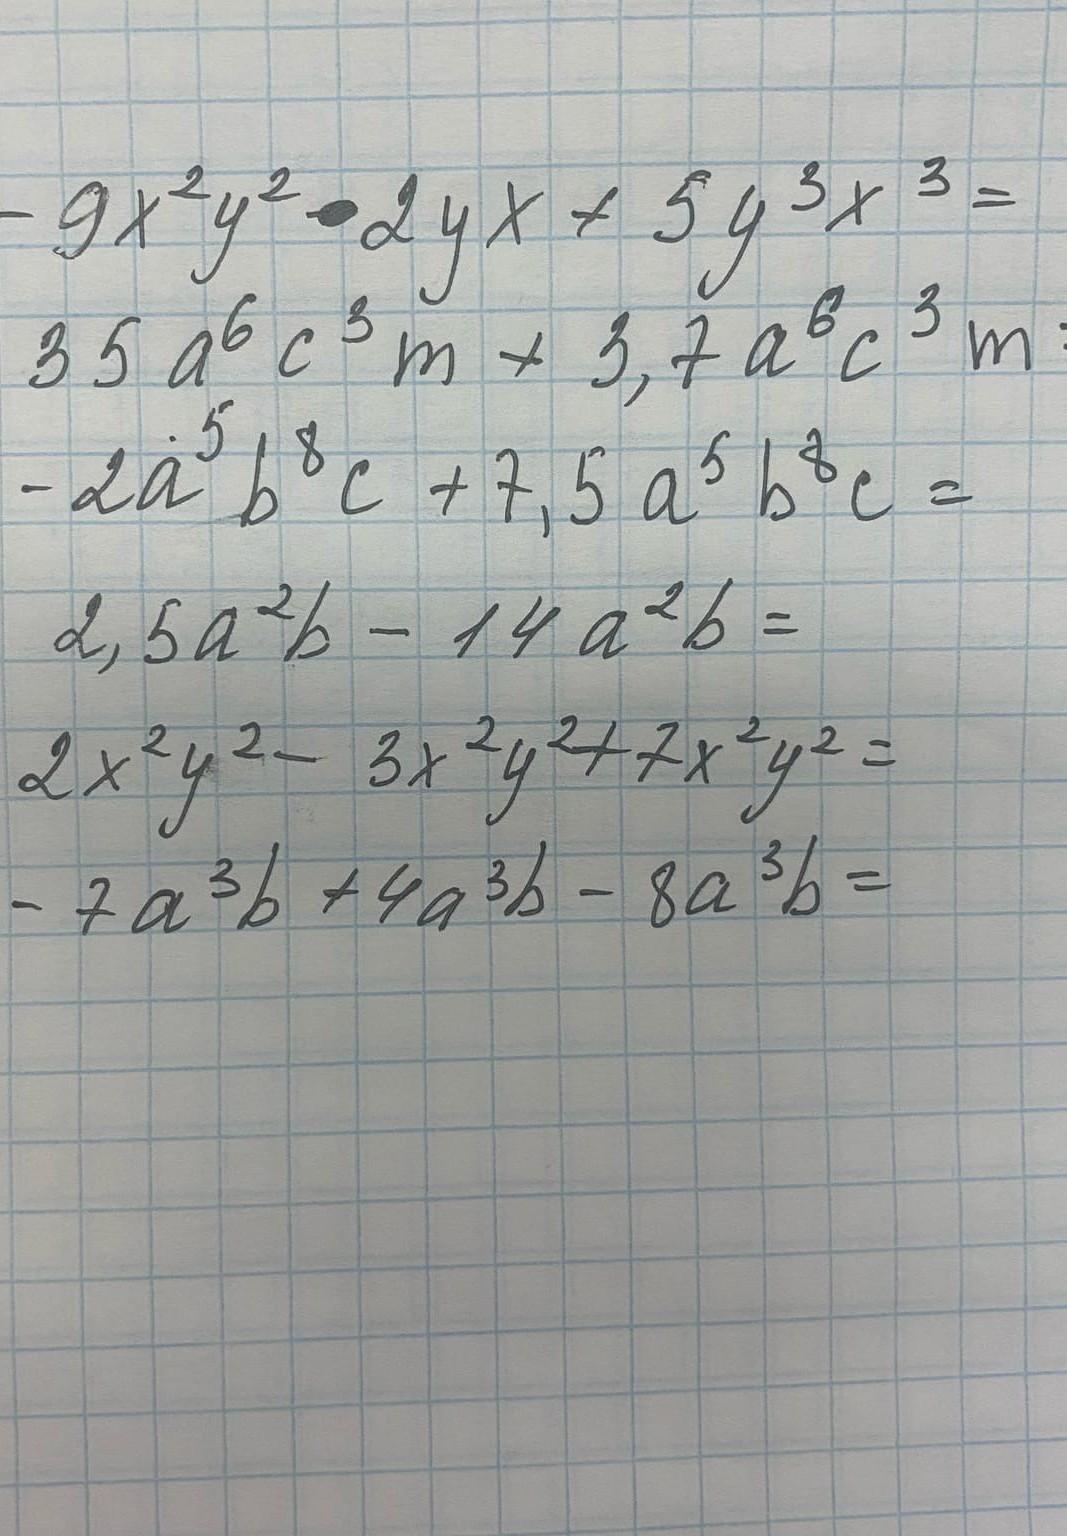 - 9x²y² • 2yx + 5y³x³ =
35a⁶c³m + 3,7a⁶c³m =
- 2a⁵b⁸c + 7,5a⁵b⁸c =
2,5a²b - 14a²b =
2x²y² - 3x²y² + 7x²y² =
- 7a³b + 4a³b - 8a³b =